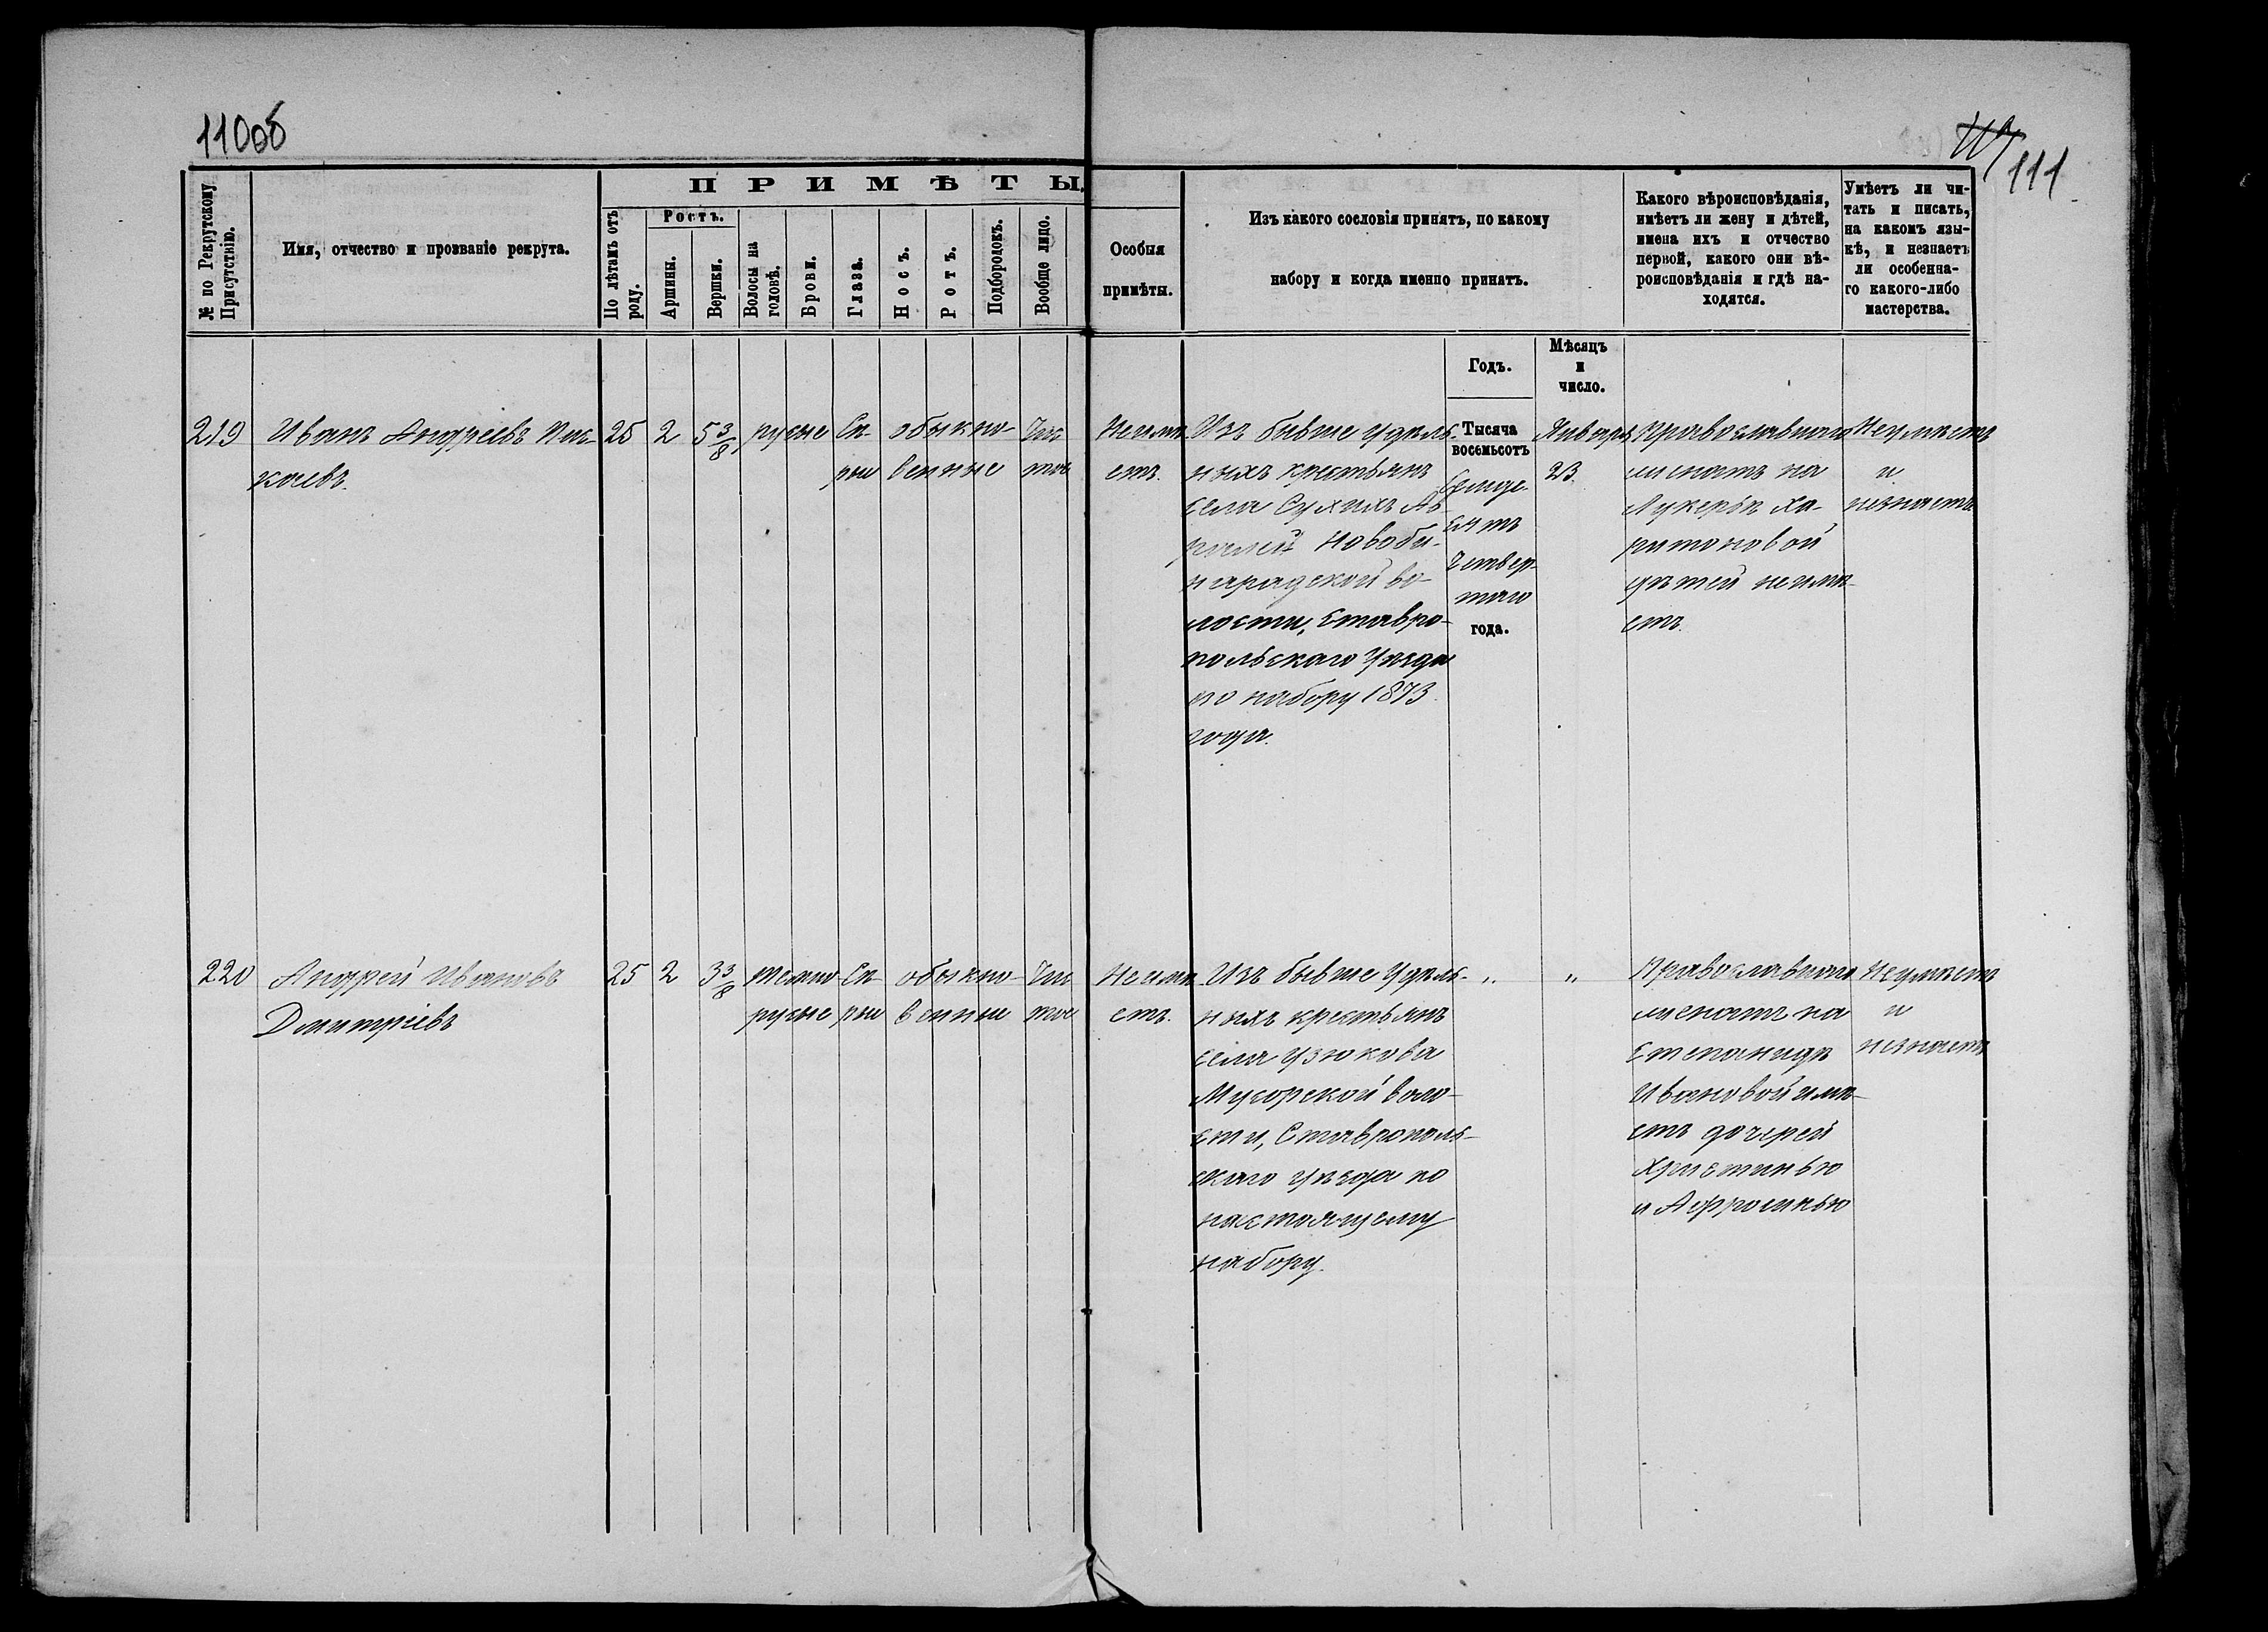 110об
111
П Р И М Ѣ Т Ы.
№ по Рекрутскому Присутствію.
Имя, отчество и прозваніе рекрута.
По лѣтамъ отъ роду.
Ростъ.
Аршины.
Вершки.
Волосы на головѣ.
Брови.
Глаза.
Носъ.
Ротъ.
Подбородокъ.
Вообще лицо.
Особыя
примѣты.
Изъ какого сословія принятъ, по какому
набору и когда именно принятъ.
Какого вѣроисповѣданія,
имѣетъ ли жену и дѣтей,
имена ихъ и отчество
первой, какого они вѣ-
роисповѣданія и гдѣ на-
ходятся.
Умѣетъ ли чи-
тать и писать,
на какомъ язы-
кѣ, и незнаетъ
ли особенна-
го какого-либо
мастерства.
Годъ.
Мѣсяцъ
и
число.
219
Иванъ Андреевъ
25
2
5 3/8
русые
Сѣ-
рые
обыкно-
венные
Чис
тое
Неимѣ-
етъ.
Изъ бывше удѣль-
ныхъ крестьянъ
села Сухихъ Ав-
ралей Новоби-
нарадской во-
лости, Ставро-
польскаго Уѣзда
по набору 1873
года.
Тысяча
восемьсотъ
Семьде-
сятъ
Четвер-
таго
года.
Января
23.
Православнаго
женатъ на
Лукерьѣ Ха-
ритоновой
дѣтей неимѣ-
етъ.
Неумѣетъ
и
незнаетъ
220
Андрей Ивановъ
Дмитріевъ
25
2
3 3/8
темно-
русые
Сѣ-
рые
обыкно-
венные
Чис
тое
Неимѣ-
етъ.
Изъ бывше Удѣль-
ныхъ крестьянъ
села Узюкова
Мусорской воло-
сти, Ставрополь-
скаго уѣзда по
настоящему
набору.
"
"
Православнаго
женатъ на
Степанидѣ
Ивановой имѣ-
етъ дочерей
Христинью
и Афросинью
Неумѣетъ
и
незнаетъ